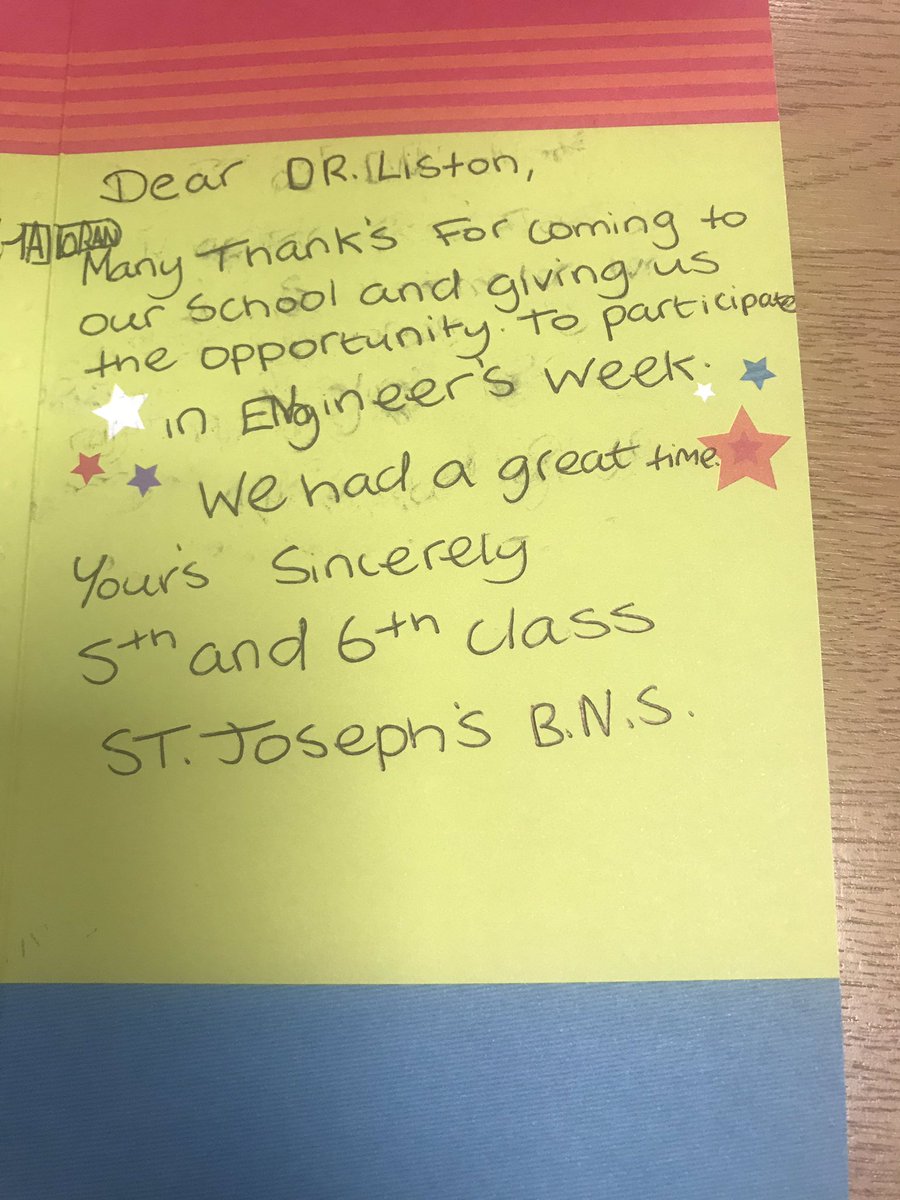 Dear DR. Liston,
Many Thank's For coming to
our School and giving us
the opportunity. To participate
in ENgineer's week.
We had a great time.
Your's Sincerely
5th and 6th class
ST. Joseph's B.N.S.